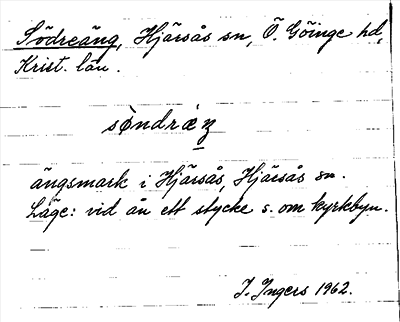 Södreäng, Hjärsås sn, Ö. Göinge hd,
Krist. län.
sø̀ndræ̀ŋ
ängsmark i Hjärsås, Hjärsås sn.
Läge: vid ån ett stycke s. om kyrkbyn.
I. Ingers 1962.